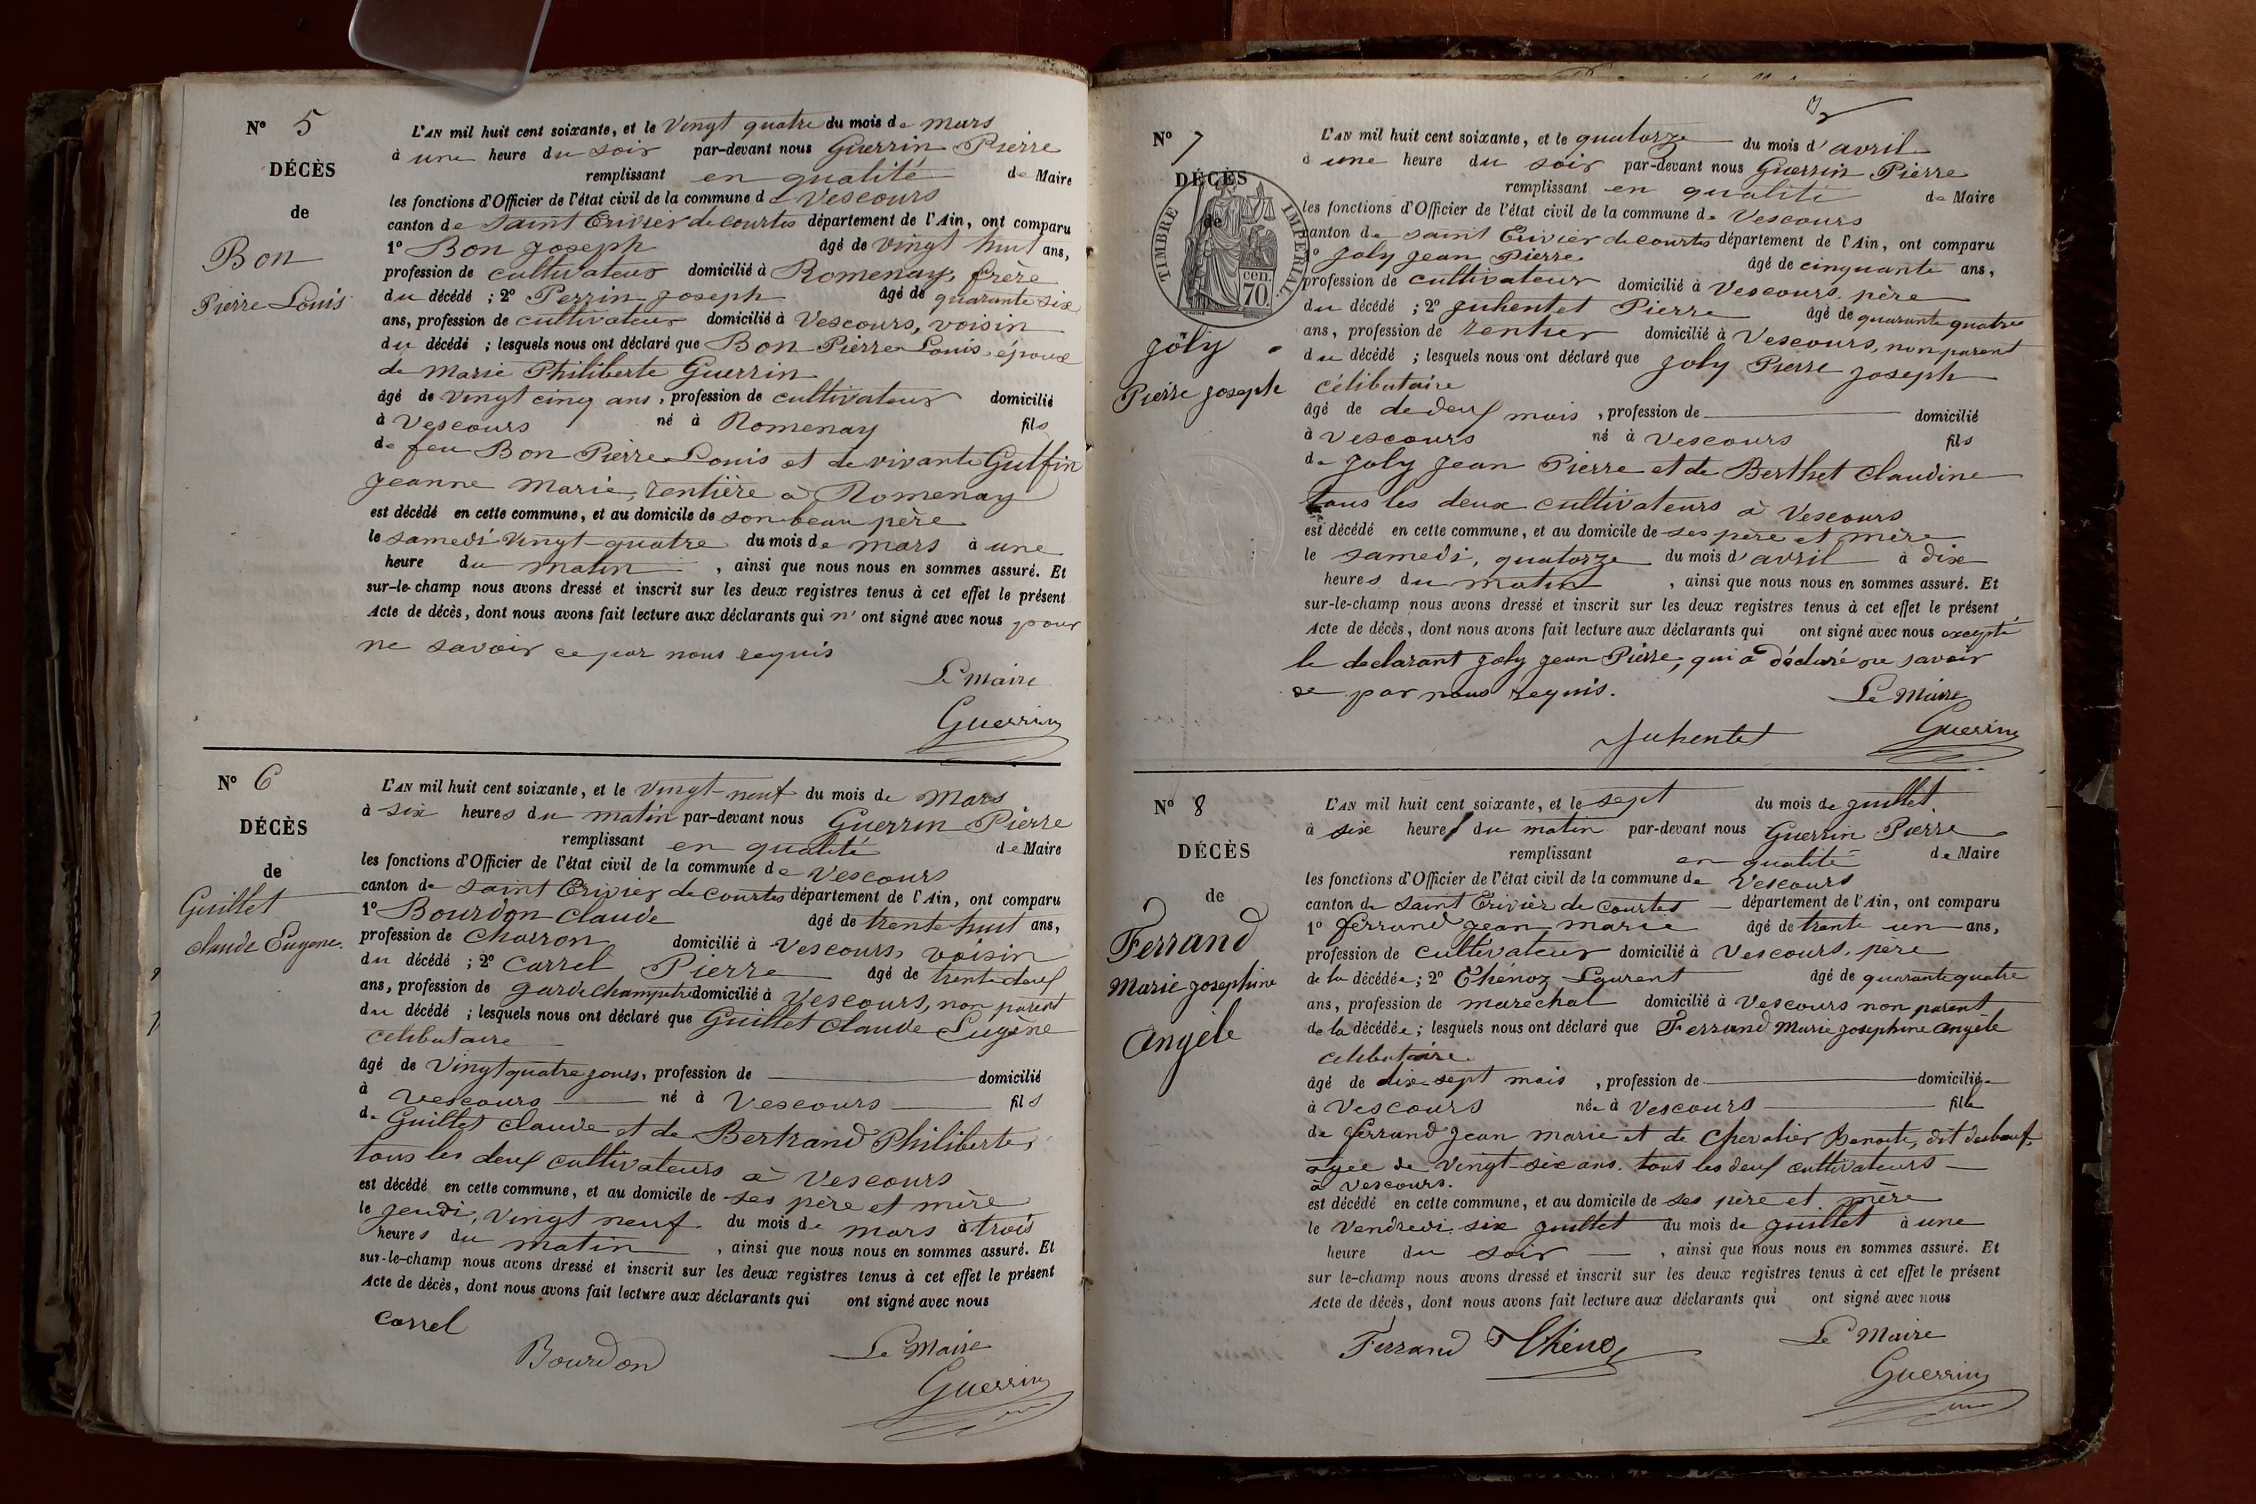 N° 5
DÉCÈS
de
Bon
Pierre Louis
L'AN mil huit cent soixante, et le Vingt quatre du mois de mars
à une heure du soir par-devant nous Guerrin Pierre
remplissant en qualité de Maire
les fonctions d'Officier de l'état civil de la commune de Vescours
canton de Saint Trivier de courtes département de l'Ain, ont comparu
1° Bon Joseph âgé de vingt huit ans,
profession de cultivateur domicilié à Romenay, frère
du décédé ; 2° Perrin Joseph âgé de quarante six
ans, profession de cultivateur domicilié à Vescours, voisin
du décédé ; lesquels nous ont déclaré que Bon Pierre Louis, époux
de Marie Philiberte Guerrin
âgé de vingt cinq ans, profession de cultivateur domicilié
à Vescours né à Romenay fils
de feu Bon Pierre Louis et de vivante
Jeanne Marie, rentière à Romenay
est décédé en cette commune, et au domicile de son beau père
le samedi vingt-quatre du mois de mars à une
heure du matin, ainsi que nous nous en sommes assuré. Et
sur-le-champ nous avons dressé et inscrit sur les deux registres tenus à cet effet le présent
Acte de décès, dont nous avons fait lecture aux déclarants qui n'ont signé avec nous pour
ne savoir ce par nous requis
Le Maire
Guerrin
N° 6
DÉCÈS
de
Guillet
claude Eugene.
L'AN mil huit cent soixante, et le Vingt-neuf du mois de Mars
à six heures du matin par-devant nous Guerrin Pierre
remplissant en qualité de Maire
les fonctions d'Officier de l'état civil de la commune de Vescours
canton de Saint Trivier de Courtes département de l'Ain, ont comparu
1° Bourdon Claude âgé de trente huit ans,
profession de Charron domicilié à Vescours, voisin
du décédé ; 2° Carrel Pierre âgé de trente deux
ans, profession de garde champêtre domicilié à Vescours, non parent
du décédé ; lesquels nous ont déclaré que Guillet Claude Eugène
célibataire
âgé de Vingt quatre jours, profession de domicilié
à Vescours né à Vescours fils
de Guillet claude et de Bertrand Philiberte,
tous les deux cultivateurs à Vescours
est décédé en cette commune, et au domicile de ses père et mère
le jeudi, vingt neuf du mois de mars à trois
heures du matin, ainsi que nous nous en sommes assuré. Et
sur-le-champ nous avons dressé et inscrit sur les deux registres tenus à cet effet le présent
Acte de décès, dont nous avons fait lecture aux déclarants qui ont signé avec nous
Carrel
Bourdon
Le Maire
Guerrin
N° 7
DÉCÈS
de
TIMBRE IMPÉRIAL
70 cen.
Joly
Pierre Joseph
L'AN mil huit cent soixante, et le quatorze du mois d'avril
à une heure du soir par-devant nous Guerrin Pierre
remplissant en qualité de Maire
les fonctions d'Officier de l'état civil de la commune de Vescours
canton de Saint Trivier de courtes département de l'Ain, ont comparu
1° Joly Jean Pierre âgé de cinquante ans,
profession de cultivateur domicilié à Vescours, père
du décédé ; 2° Juhentet Pierre âgé de quarante quatre
ans, profession de rentier domicilié à Vescours, non parent
du décédé ; lesquels nous ont déclaré que Joly Pierre Joseph
célibataire
âgé de de deux mois, profession de domicilié
à Vescours né à Vescours fils
de Joly Jean Pierre et de Berthet Claudine
tous les deux cultivateurs à Vescours
est décédé en cette commune, et au domicile de ses père et mère
le samedi, quatorze du mois d'avril à dix
heures du matin, ainsi que nous nous en sommes assuré. Et
sur-le-champ nous avons dressé et inscrit sur les deux registres tenus à cet effet le présent
Acte de décès, dont nous avons fait lecture aux déclarants qui ont signé avec nous excepté
le declarant Joly Jean Pierre, qui a déclaré ne savoir
ce par nous requis.
Le Maire
Juhentet
Guerrin
N° 8
DÉCÈS
de
Ferrand
Marie Josephine
Angèle
L'AN mil huit cent soixante, et le sept du mois de juillet
à six heures du matin par-devant nous Guerrin Pierre
remplissant en qualité de Maire
les fonctions d'Officier de l'état civil de la commune de Vescours
canton de Saint Trivier de Courtes département de l'Ain, ont comparu
1° Ferrand Jean Marie âgé de trente un ans,
profession de cultivateur domicilié à Vescours, père
de la décédée ; 2° Thénoz Laurent âgé de quarante quatre
ans, profession de maréchal domicilié à Vescours non parent
de la décédée ; lesquels nous ont déclaré que Ferrand Marie Josephine Angèle
célibataire
âgé de dix-sept mois, profession de domiciliée
à Vescours née à Vescours fille
de Ferrand Jean Marie et de Chevalier Benoite, dit
agée de vingt-six ans. tous les deux cultivateurs
à Vescours.
est décédé en cette commune, et au domicile de ses père et mère
le Vendredi six juillet du mois de juillet à une
heure du soir, ainsi que nous nous en sommes assuré. Et
sur le-champ nous avons dressé et inscrit sur les deux registres tenus à cet effet le présent
Acte de décès, dont nous avons fait lecture aux déclarants qui ont signé avec nous
Ferrand Thénoz
Le Maire
Guerrin